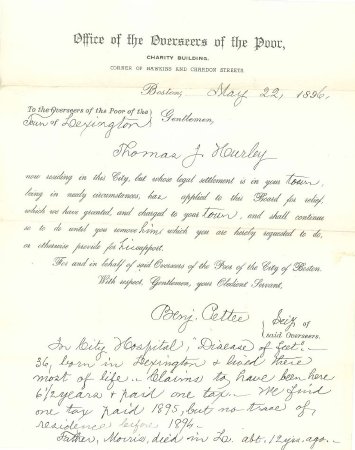 Office of the Overseers of the Poor,
CHARITY BUILDING,
CORNER OF HAWKINS AND CHARDON STREETS.
Boston, May 22, 1896
To the Overseers of the Poor of the
Town of Lexington
Gentlemen,
Thomas J Hurley
now residing in this City, but whose legal settlement is in your town,
being in needy circumstances, has applied to this Board for relief,
which we have granted, and charged to your town, and shall continue
so to do until you remove him which you are hereby requested to do,
or otherwise provide for his support.
For and in behalf of said Overseers of the Poor of the City of Boston.
With respect, Gentlemen, your Obedient Servant,
Benj. Pettee
of
said Overseers.
In City Hospital, "Disease of feet".-
36, born in Lexington & lived there
most of life.- Claims to have been here
6 1/2 years & paid one tax.- We find
one tax paid 1895, but no trace of
residence before 1894.-
Father, Morris, died in L. abt. 12 yrs. ago.-